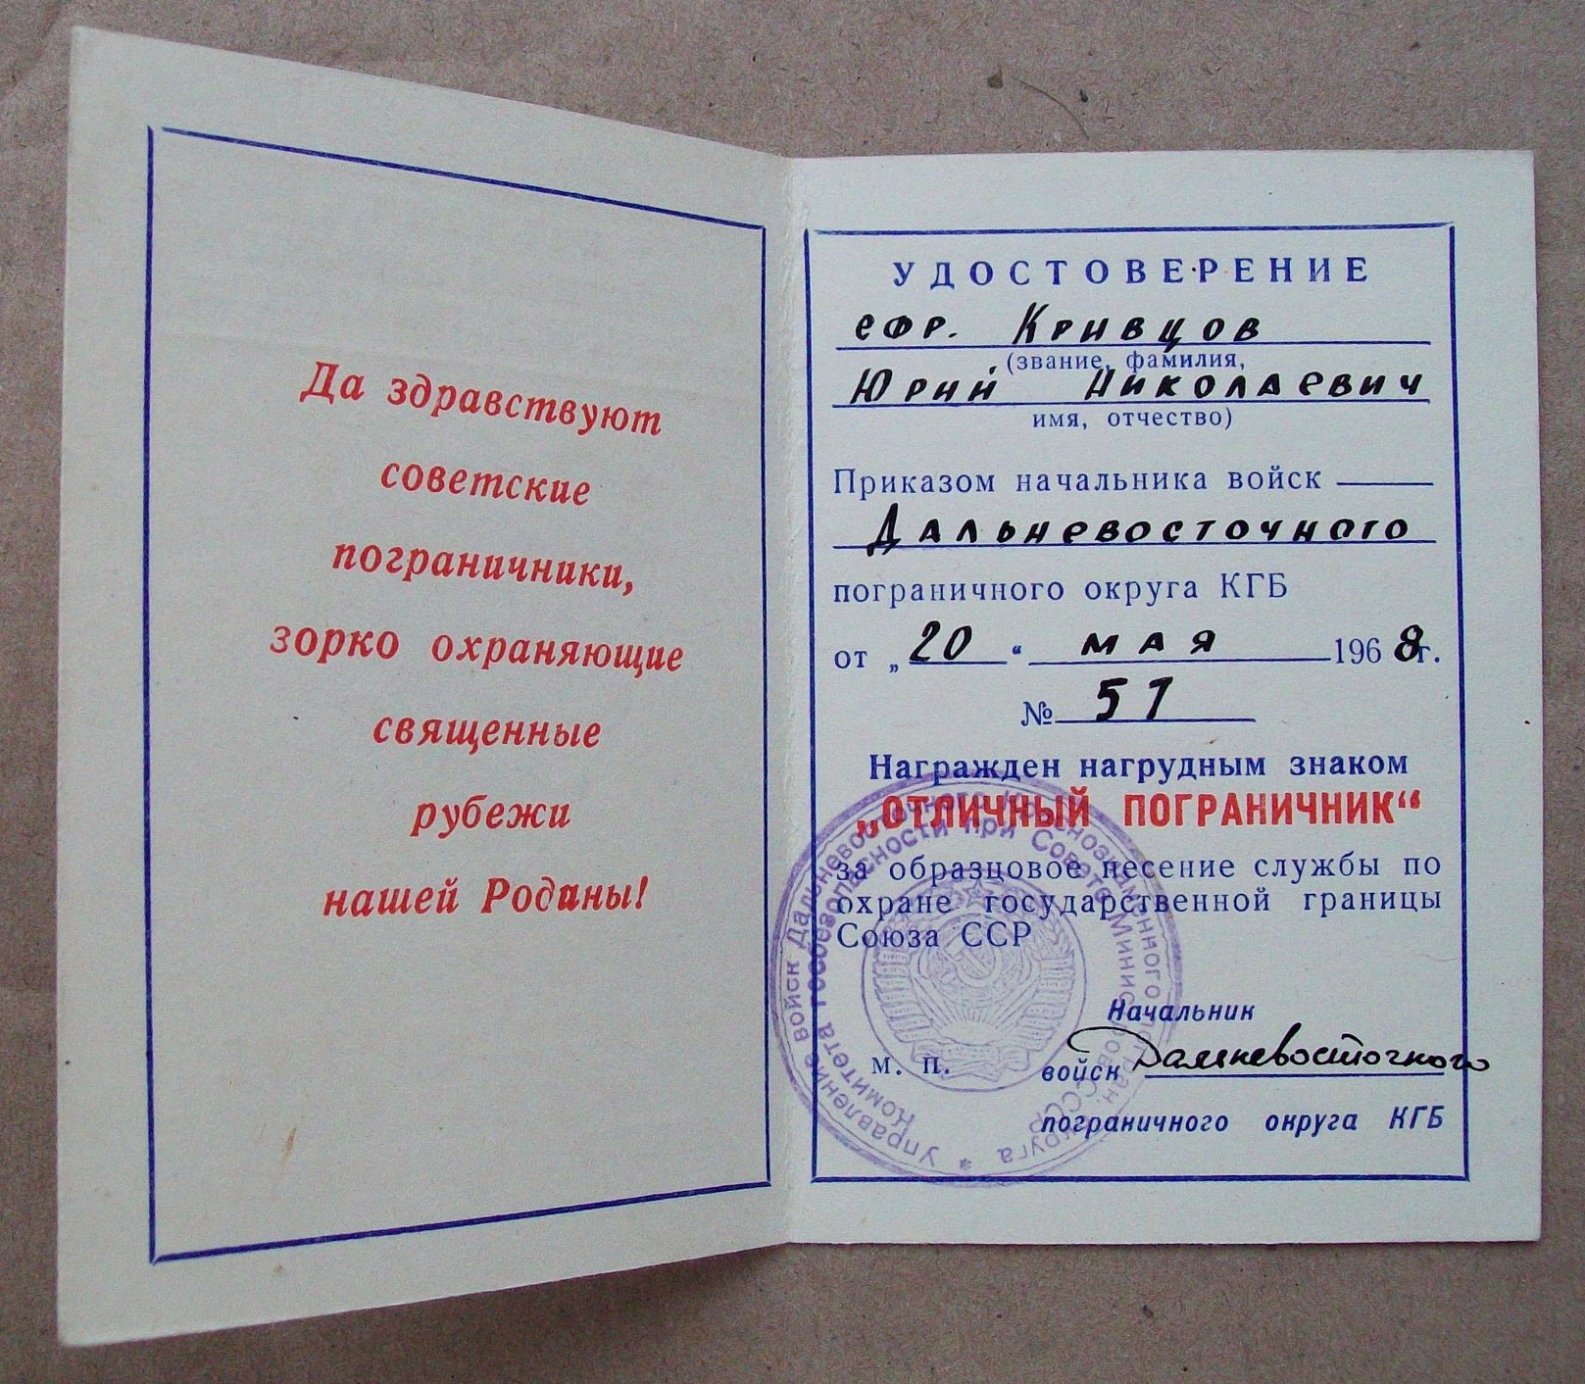 Да здравствуют
советские
пограничники,
зорко охраняющие
священные
рубежи
нашей Родины!
УДОСТОВЕРЕНИЕ
ефр. Кривцов
(звание, фамилия,
Юрий Николаевич
имя, отчество)
Приказом начальника войск
Дальневосточного
пограничного округа КГБ
от „20“ мая 1968г.
№ 51
Награжден нагрудным знаком
„ОТЛИЧНЫЙ ПОГРАНИЧНИК“
за образцовое несение службы по
охране государственной границы
Союза ССР
Начальник
м. п. войск Дальневосточного
пограничного округа КГБ
Управление войск Дальневосточного Краснознаменного погран. округа *
Комитета госбезопасности при Совете Министров СССР